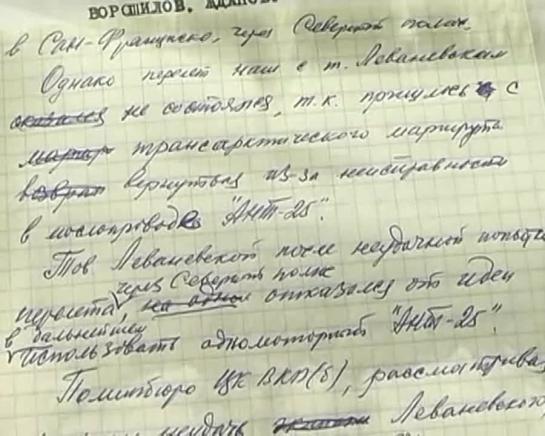 ВОРОШИЛОВ, ЖДАНОВ
в Сан-Франциско, через Северный полюс.
Однако перелет наш с т. Леваневским
оказался не состоялся, т.к. пришлось с
маршр трансарктического маршрута
возврат вернуться из-за неисправности
в маслопроводке "АНТ-25".
Тов Леваневский после неудачной попытки
через Северный полюс
перелета, отказался от идеи
в дальнейшем
использовать одномоторный "АНТ-25".
Политбюро ЦК ВКП(б), рассматривая
неудачь Леваневского,